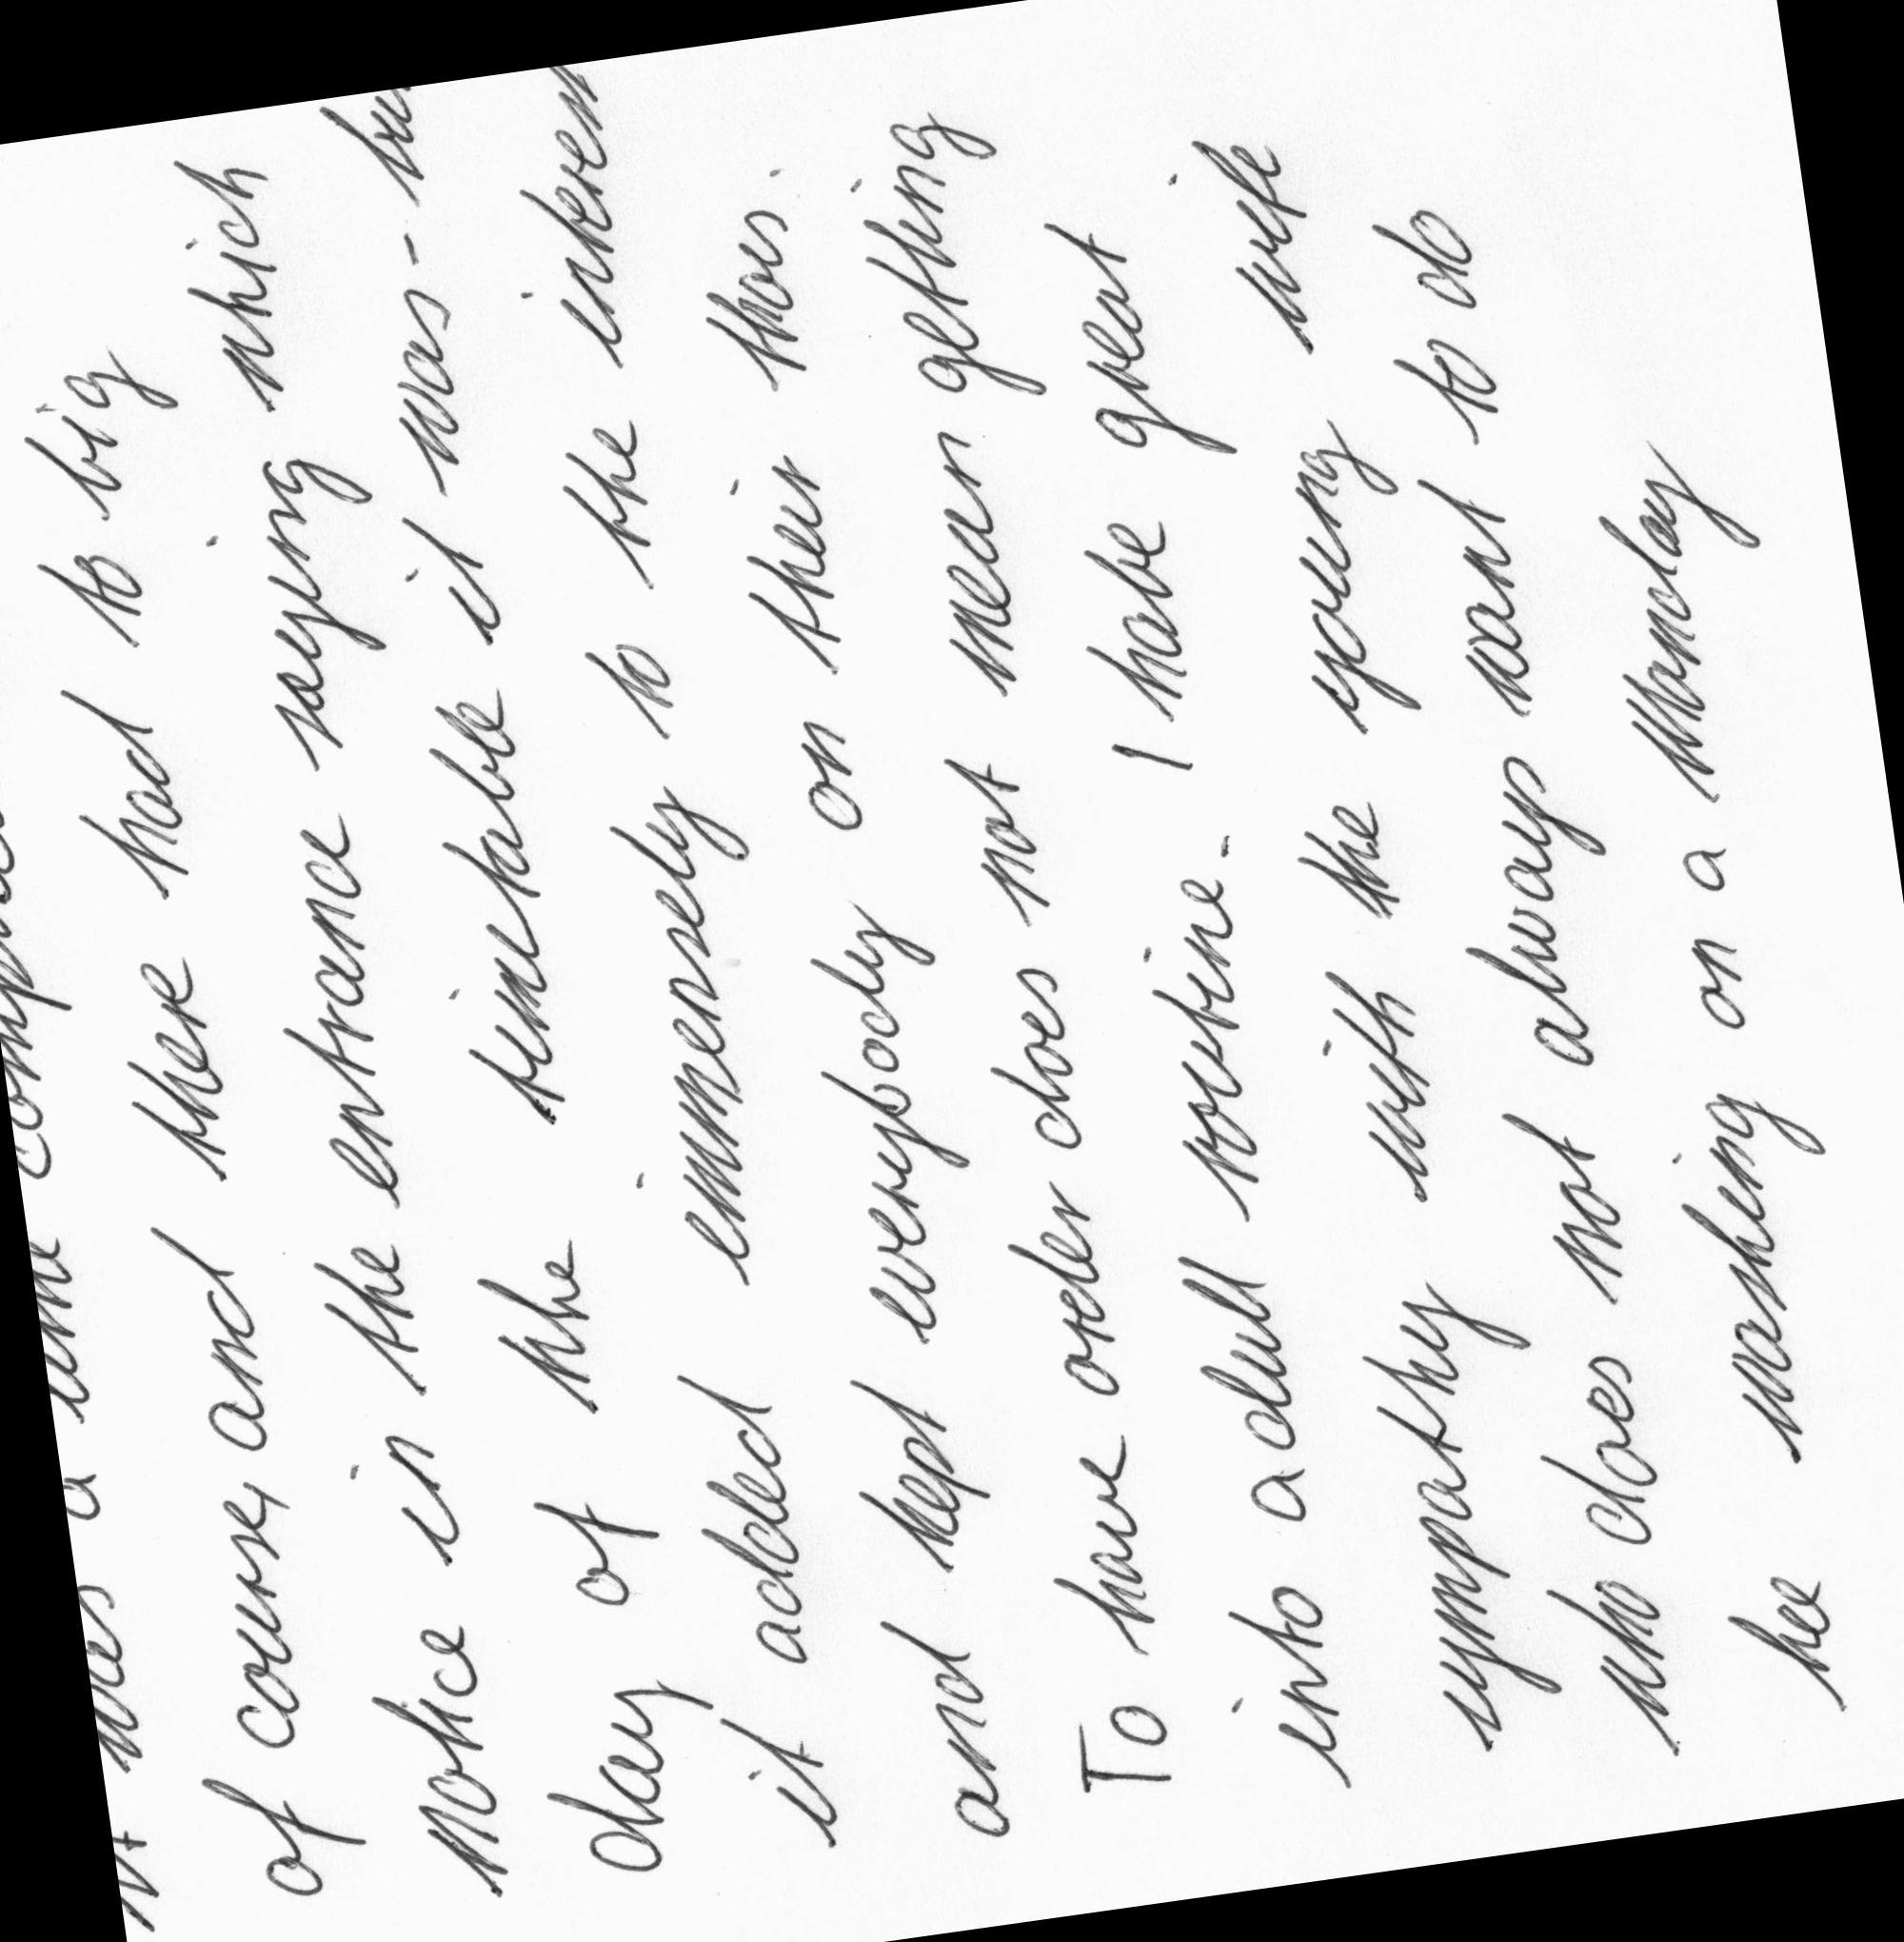 was a time
of course, and there had to big
notice in the entrance saying which
day of the timetable it was -
it added immensely to the
and kept everybody on their thoes.
To have order does not mean getting
into a dull routine. I have great
sympathy with the young wife
who does not always want to do
hee washing on a Monday